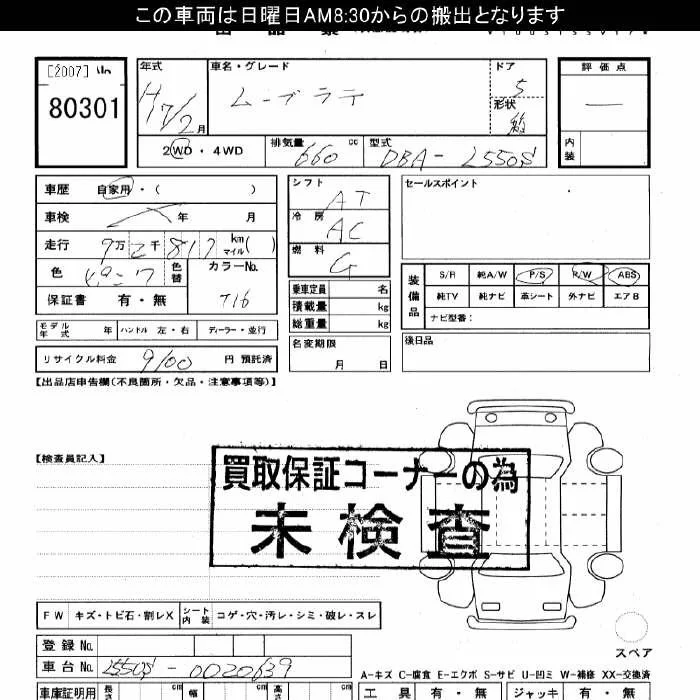 この車両は日曜日AM8:30からの搬出となります
[2007]
80301
年式 H17/2月
車名・グレード ムーブラテ
ドア 5
形状 箱
評価点 —
内装
2WD・4WD
排気量 660 cc
型式 DBA-L550S
車歴 自家用・( )
車検 年 月
走行 9万2千817 km マイル( )
色 ピンク 色替
カラーNo. T16
保証書 有・無
シフト AT
冷房 AC
燃料 G
乗車定員 名
積載量 kg
総重量 kg
名変期限 月 日
セールスポイント
装備品
S/R 純A/W P/S R/W ABS
純TV 純ナビ 革シート 外ナビ エアB
ナビ型番:
後日品
モデル年式 年 ハンドル 左・右 ディーラー・並行
リサイクル料金 9100 円 預託済
【出品店申告欄(不良箇所・欠品・注意事項等)】
【検査員記入】
買取保証コーナーの為
未検査
FW キズ・トビ石・割レX シート内装 コゲ・穴・汚レ・シミ・破レ・スレ
スペア
登録No.
車台No. L550S-0020639
A-キズ C-腐食 E-エクボ S-サビ U-凹ミ W-補修 XX-交換済
車庫証明用 長さ cm 幅 cm 高さ cm
工具 有・無 ジャッキ 有・無